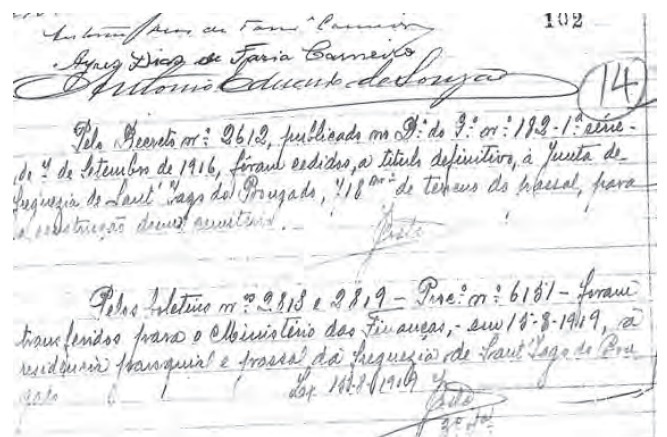 102
Ayres Diaz de Faria Carneiro
Antonio Eduardo de Souza
14
Pelo Decreto nº 2612, publicado no D.º do G.º nº 182-1ª série-
de 7 de Setembro de 1916, fôram cedidos, a titulo definitivo, á Junta de
freguezia de Sant'Iago do Bougado, 718 m² de terreno do passal, para
a construção dum cemiterio.
Pelos boletins nºs 2818 e 2819 - Proc.º nº 6151 - foram
transferidos para o Ministério das Finanças, - em 15-8-1919, a
residencia paroquial e passal da freguezia de Sant'Iago do Bou-
gado
15-8-1919